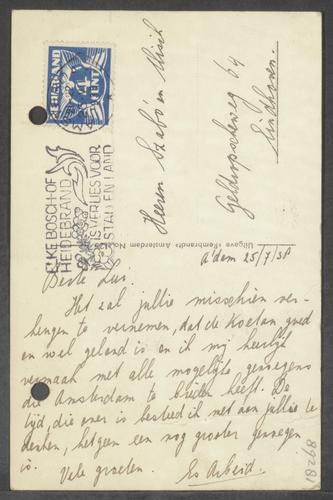 NEDERLAND
4
CENT
ELKE BOSCH- OF
HEIDEBRAND
IS VERLIES VOOR
STAD EN LAND
Heeren Szabó en Misch
Geldropscheweg 64
Eindhoven.
Uitgave «Rembrandt» Amsterdam No.
A'dam 25/7/38
Beste Lui.
Het zal jullie misschien ver-
heugen te vernemen, dat de Koetan goed
en wel geland is en ik mij heerlijk
vermaak met alle mogelijke genoegens
die Amsterdam te bieden heeft. De
tijd, die over is besteed ik met aan jullie te
denken, hetgeen een nog grooter genoegen
is.
Vele groeten.
89281